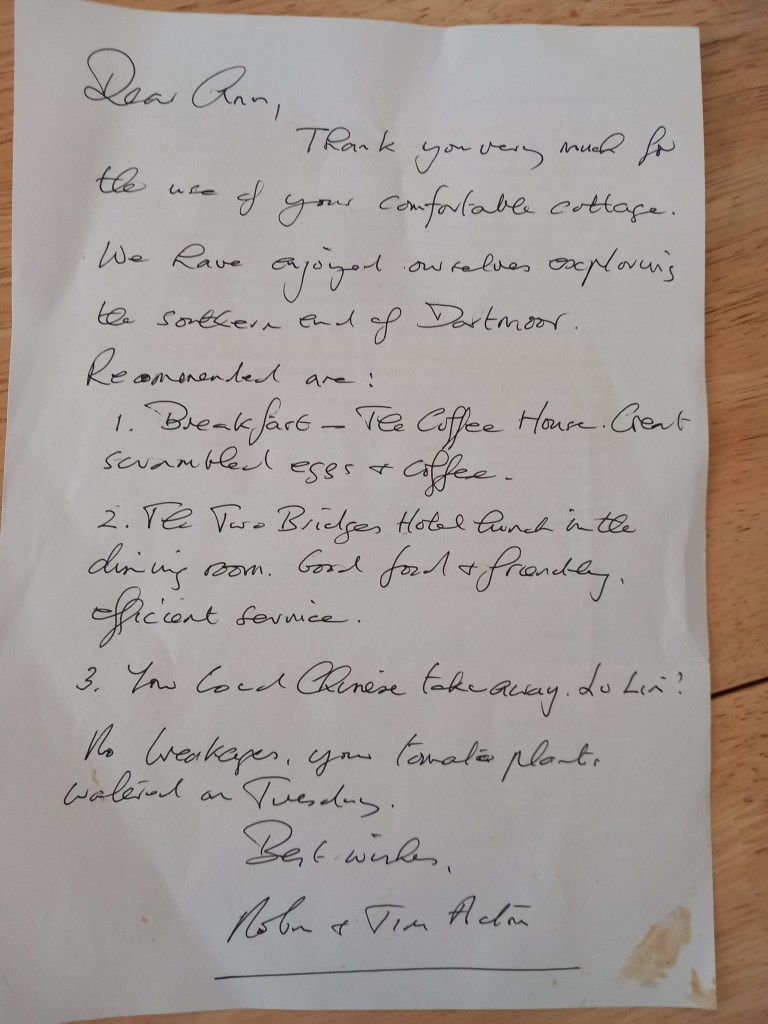 Dear Ann,
Thank you very much for
the use of your comfortable cottage.
We have enjoyed ourselves exploring
the southern end of Dartmoor.
Recommended are:
1. Breakfast – The Coffee House. Great
scrambled eggs & coffee.
2. The Two Bridges Hotel lunch in the
dining room. Good food & friendly,
efficient service.
3. Your local Chinese takeaway.
No breakages, your tomato plants
watered on Tuesday.
Best wishes,
Robin & Tim